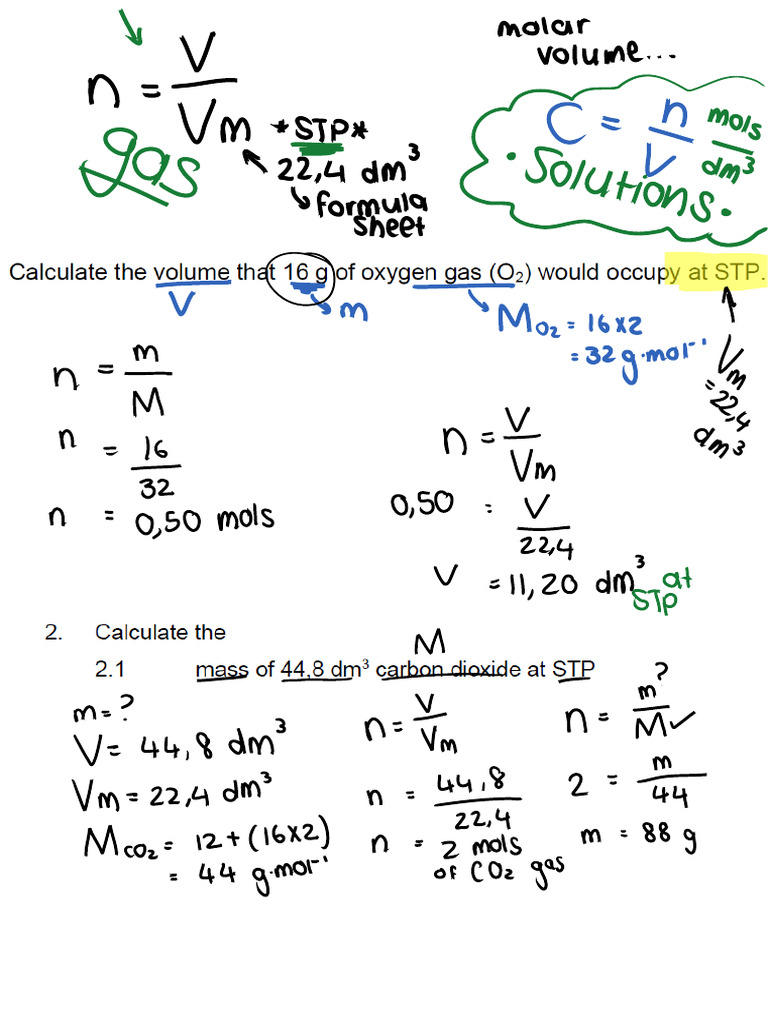 molar
volume...
n = V / Vm
*STP*
22,4 dm³
formula
sheet
gas
C = n / V mols / dm³
• Solutions •
Calculate the volume that 16 g of oxygen gas (O₂) would occupy at STP.
V
m
M O₂ = 16×2
= 32 g·mol⁻¹
Vm
= 22,4
dm³
n = m / M
n = 16 / 32
n = 0,50 mols
n = V / Vm
0,50 = V / 22,4
V = 11,20 dm³ at
STP
2. Calculate the
M
2.1 mass of 44,8 dm³ carbon dioxide at STP
m = ?
V = 44,8 dm³
Vm = 22,4 dm³
M CO₂ = 12 + (16×2)
= 44 g·mol⁻¹
n = V / Vm
n = 44,8 / 22,4
n = 2 mols
of CO₂ gas
n = m? / M ✓
2 = m / 44
m = 88 g